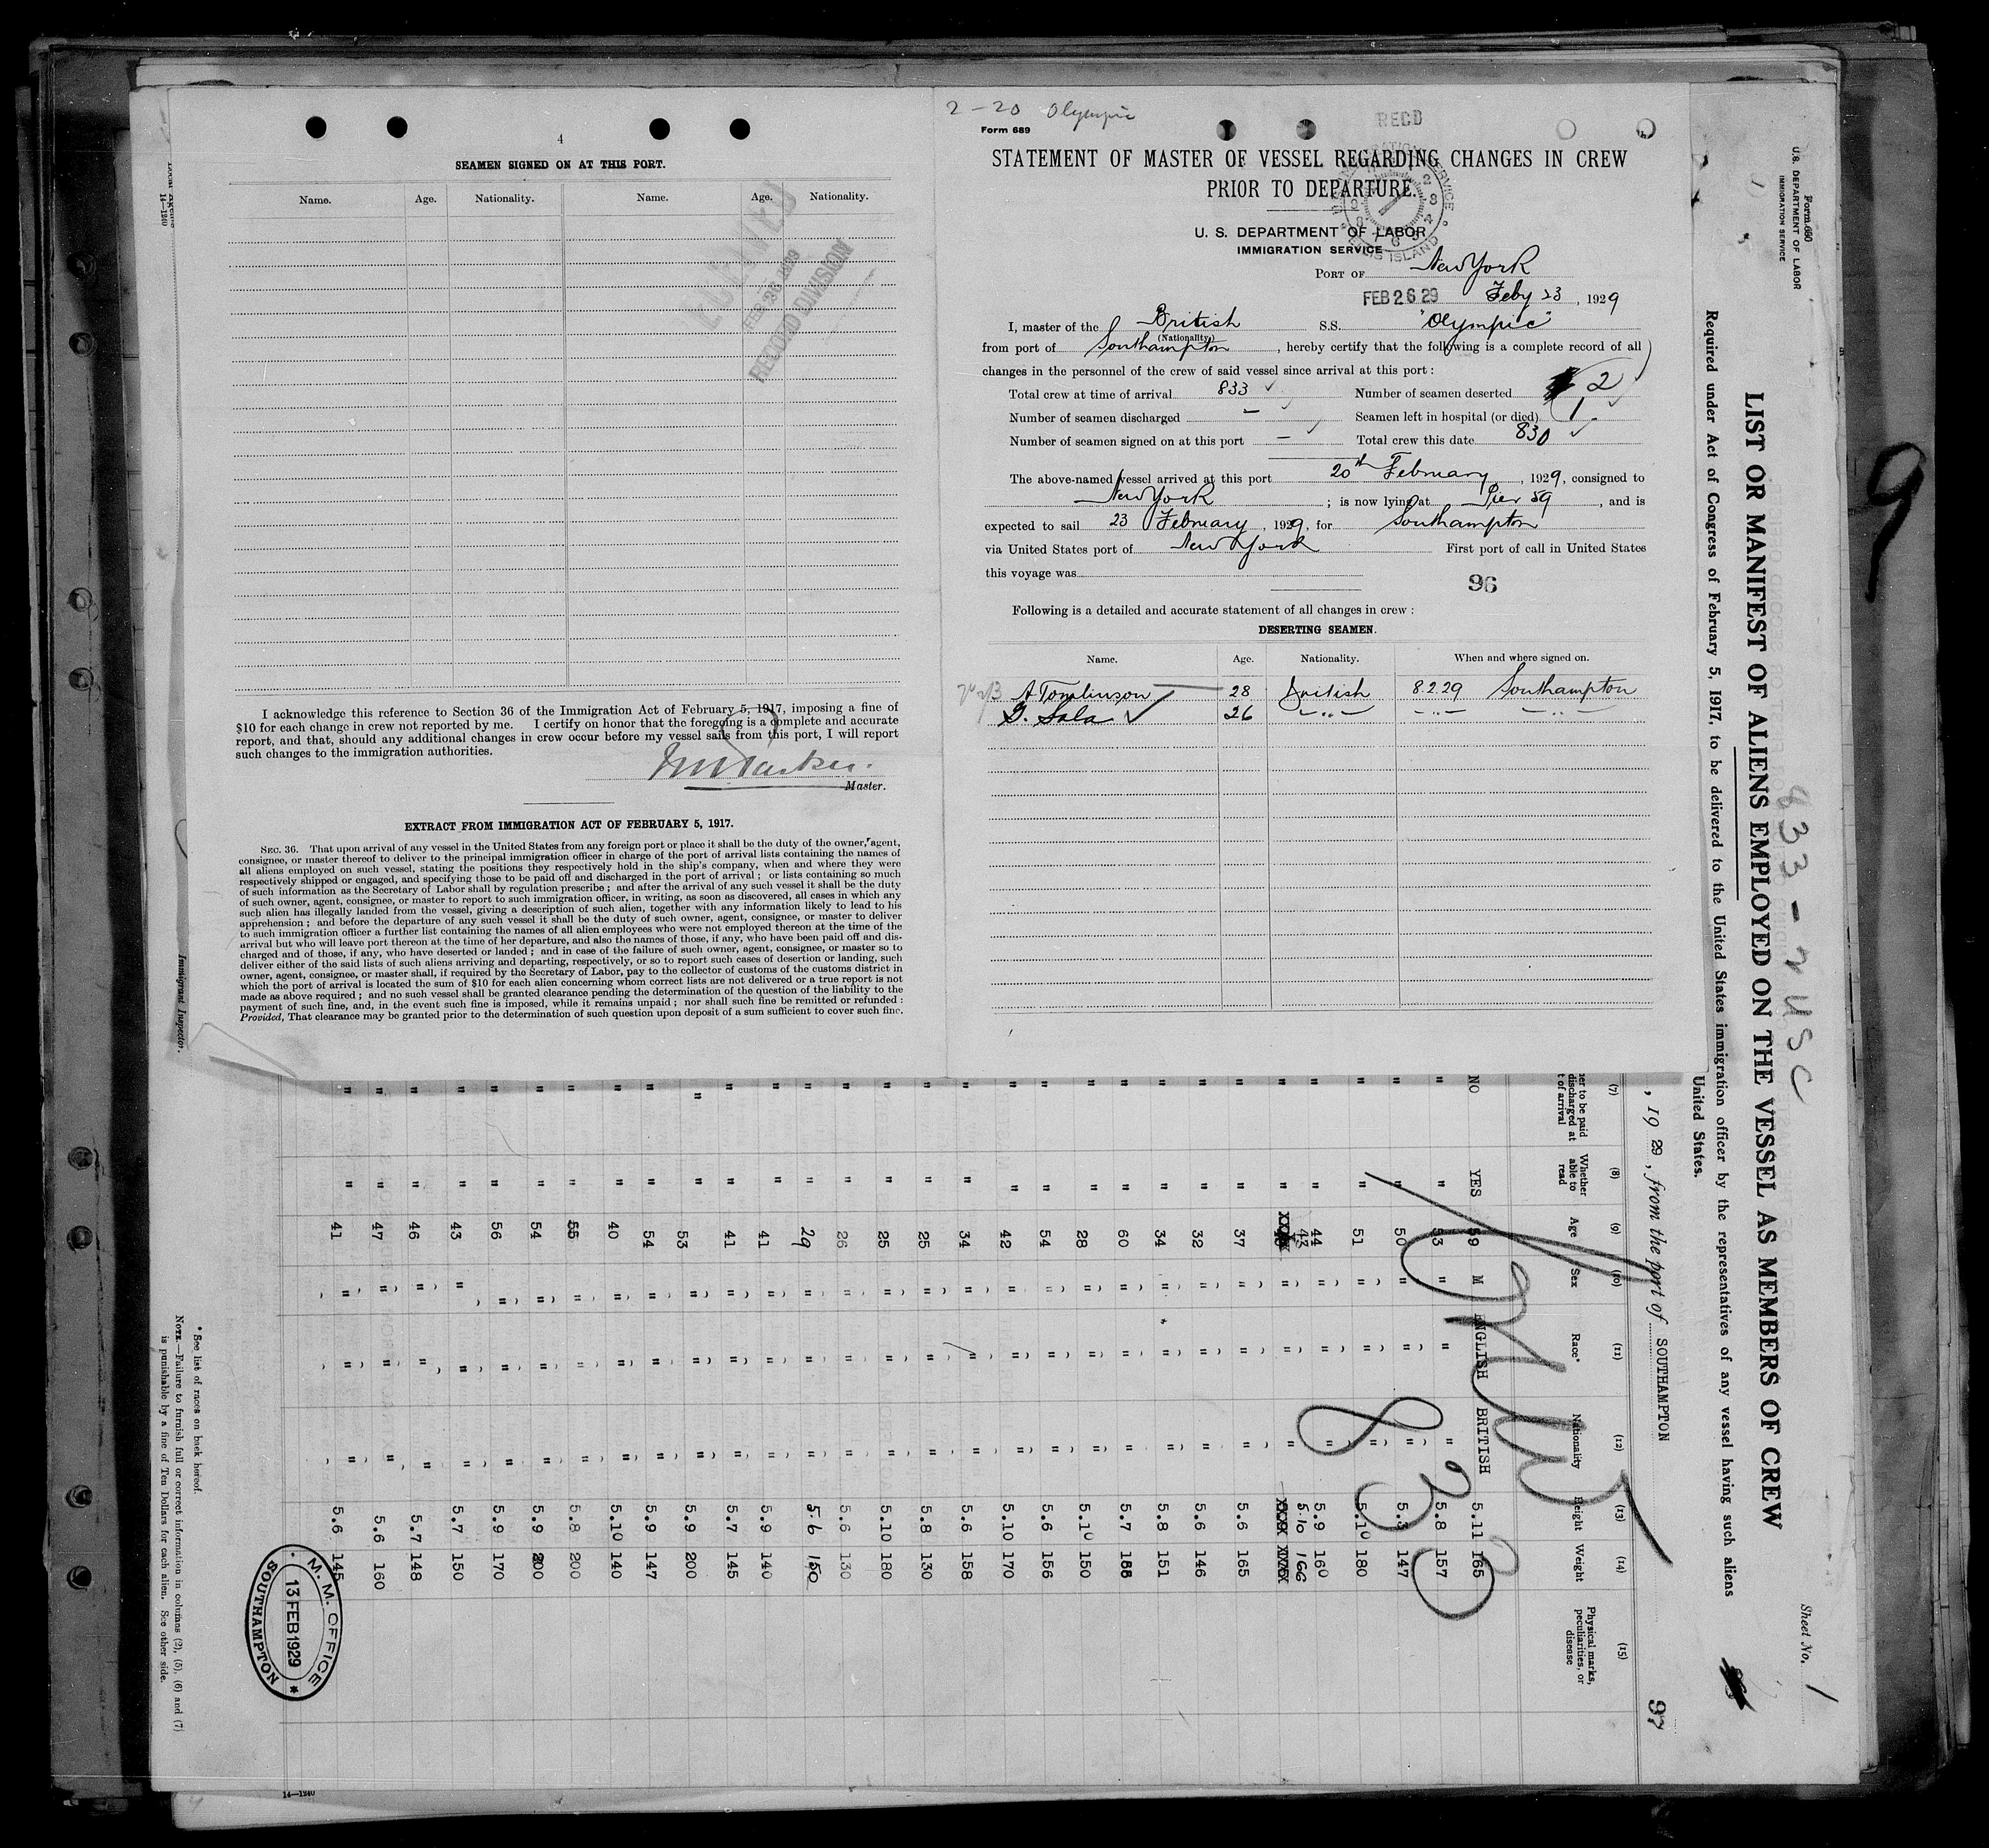 4
SEAMEN SIGNED ON AT THIS PORT.
Name. Age. Nationality. Name. Age. Nationality.
FEB 26 1929
RECORD DIVISION
I acknowledge this reference to Section 36 of the Immigration Act of February 5, 1917, imposing a fine of
$10 for each change in crew not reported by me. I certify on honor that the foregoing is a complete and accurate
report, and that, should any additional changes in crew occur before my vessel sails from this port, I will report
such changes to the immigration authorities.
Master.
EXTRACT FROM IMMIGRATION ACT OF FEBRUARY 5, 1917.
SEC. 36. That upon arrival of any vessel in the United States from any foreign port or place it shall be the duty of the owner, agent,
consignee, or master thereof to deliver to the principal immigration officer in charge of the port of arrival lists containing the names of
all aliens employed on such vessel, stating the positions they respectively hold in the ship's company, when and where they were
respectively shipped or engaged, and specifying those to be paid off and discharged in the port of arrival; or lists containing so much
of such information as the Secretary of Labor shall by regulation prescribe; and after the arrival of any such vessel it shall be the duty
of such owner, agent, consignee, or master to report to such immigration officer, in writing, as soon as discovered, all cases in which any
such alien has illegally landed from the vessel, giving a description of such alien, together with any information likely to lead to his
apprehension; and before the departure of any such vessel it shall be the duty of such owner, agent, consignee, or master to deliver
to such immigration officer a further list containing the names of all alien employees who were not employed thereon at the time of the
arrival but who will leave port thereon at the time of her departure, and also the names of those, if any, who have been paid off and dis-
charged and of those, if any, who have deserted or landed; and in case of the failure of such owner, agent, consignee, or master so to
deliver either of the said lists of such aliens arriving and departing, respectively, or so to report such cases of desertion or landing, such
owner, agent, consignee, or master shall, if required by the Secretary of Labor, pay to the collector of customs of the customs district in
which the port of arrival is located the sum of $10 for each alien concerning whom correct lists are not delivered or a true report is not
made as above required; and no such vessel shall be granted clearance pending the determination of the question of the liability to the
payment of such fine, and, in the event such fine is imposed, while it remains unpaid; nor shall such fine be remitted or refunded:
Provided, That clearance may be granted prior to the determination of such question upon deposit of a sum sufficient to cover such fine.
2-20 Olympic
Form 689
RECD
STATEMENT OF MASTER OF VESSEL REGARDING CHANGES IN CREW
PRIOR TO DEPARTURE.
U. S. DEPARTMENT OF LABOR
IMMIGRATION SERVICE
ELLIS ISLAND
PORT OF New York
FEB 26 29 Feby 23, 1929
I, master of the British S.S. "Olympic"
(Nationality)
from port of Southampton, hereby certify that the following is a complete record of all
changes in the personnel of the crew of said vessel since arrival at this port:
Total crew at time of arrival 833 Number of seamen deserted 2
Number of seamen discharged — Seamen left in hospital (or died) 1
Number of seamen signed on at this port — Total crew this date 830
The above-named vessel arrived at this port 20th February, 1929, consigned to
New York; is now lying at Pier 59, and is
expected to sail 23 February, 1929, for Southampton
via United States port of New York First port of call in United States
this voyage was
96
Following is a detailed and accurate statement of all changes in crew:
DESERTING SEAMEN.
Name. Age. Nationality. When and where signed on.
A Tomlinson 28 British 8.2.29 Southampton
G. Sala 26 — " — — " — — " —
9
Form 680
U.S. DEPARTMENT OF LABOR
IMMIGRATION SERVICE
Sheet No. 1
833 - 2 USC
LIST OR MANIFEST OF ALIENS EMPLOYED ON THE VESSEL AS MEMBERS OF CREW
Required under Act of Congress of February 5, 1917, to be delivered to the United States immigration officer by the representatives of any vessel having such aliens
United States.
, 1929, from the port of SOUTHAMPTON
97
(7) (8) (9) (10) (11) (12) (13) (14) (15)
Whether able to read Age Sex Race* Nationality Height Weight Physical marks, peculiarities, or disease
NO YES 59 M ENGLISH BRITISH 5.11 165
" " 53 " " " 5.8 157
" " 50 " " " 5.3 147
" " 51 " " " 5.10 180
" " 44 " " " 5.9 160
" " 43 " " " 5.10 166
" " 37 " " " 5.6 165
" " 32 " " " 5.6 146
" " 34 " " " 5.8 151
" " 60 " " " 5.7
" " 28 " " " 5.10 150
" " 54 " " " 5.6 156
" " 42 " " " 5.10 170
" " 34 " " " 5.6 158
" " 25 " " " 5.8 130
" " 25 " " " 5.10 180
" " 26 " " " 5.6 130
" " 29 " " " 5.6 150
" " 41 " " " 5.9 140
" " 41 " " " 5.7 145
" " 53 " " " 5.9 200
" " 54 " " " 5.9 147
" " 40 " " " 5.10 140
" " 55 " " " 5.8 200
" " 54 " " " 5.9 200
" " 56 " " " 5.9 170
" " 43 " " " 5.7 150
" " 46 " " " 5.7 148
" " 47 " " " 5.6 160
" " 41 " " " 5.6 145
833
M. M. OFFICE
13 FEB 1929
SOUTHAMPTON
* See list of races on back hereof.
NOTE.—Failure to furnish full or correct information in columns (2), (5), (6) and (7)
is punishable by a fine of Ten Dollars for each alien. See other side.
Immigrant Inspector.
14—1240
14—1240